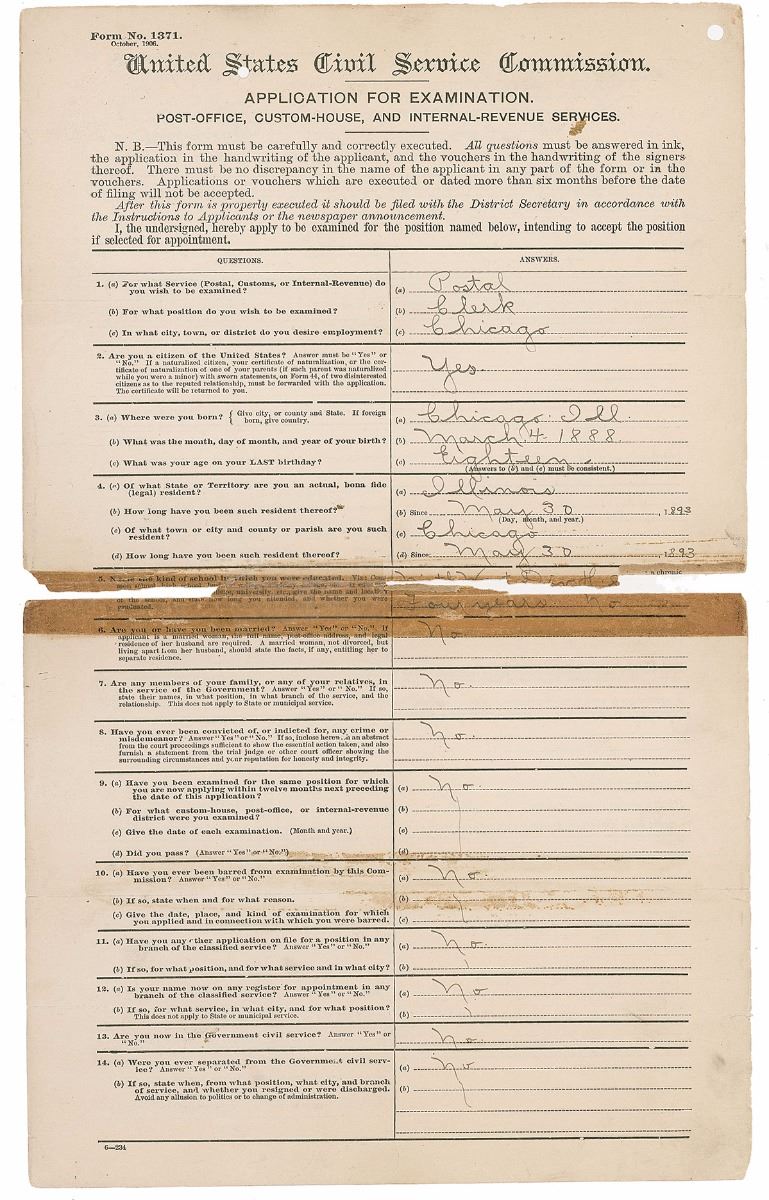 Form No. 1371.
October, 1906.
United States Civil Service Commission.
APPLICATION FOR EXAMINATION.
POST-OFFICE, CUSTOM-HOUSE, AND INTERNAL-REVENUE SERVICES.
N. B.—This form must be carefully and correctly executed. All questions must be answered in ink,
the application in the handwriting of the applicant, and the vouchers in the handwriting of the signers
thereof. There must be no discrepancy in the name of the applicant in any part of the form or in the
vouchers. Applications or vouchers which are executed or dated more than six months before the date
of filing will not be accepted.
After this form is properly executed it should be filed with the District Secretary in accordance with
the Instructions to Applicants or the newspaper announcement.
I, the undersigned, hereby apply to be examined for the position named below, intending to accept the position
if selected for appointment.
QUESTIONS. ANSWERS.
1. (a) For what Service (Postal, Customs, or Internal-Revenue) do
you wish to be examined? (a) Postal
(b) For what position do you wish to be examined? (b) Clerk
(c) In what city, town, or district do you desire employment? (c) Chicago
2. Are you a citizen of the United States? Answer must be "Yes" or
"No." If a naturalized citizen, your certificate of naturalization, or the cer-
tificate of naturalization of one of your parents (if such parent was naturalized
while you were a minor) with sworn statements, on Form 44, of two disinterested
citizens as to the reputed relationship, must be forwarded with the application.
The certificate will be returned to you.
Yes.
3. (a) Where were you born? { Give city, or county and State. If foreign
born, give country. (a) Chicago Ill
(b) What was the month, day of month, and year of your birth? (b) March 4 1888
(c) What was your age on your LAST birthday? (c) Eighteen
(Answers to (b) and (c) must be consistent.)
4. (a) Of what State or Territory are you an actual, bona fide
(legal) resident? (a) Illinois
(b) How long have you been such resident thereof? (b) Since May 30, 1893
(Day, month, and year.)
(c) Of what town or city and county or parish are you such
resident? (c) Chicago
(d) How long have you been such resident thereof? (d) Since May 30 1893
5. kind of school in which you were educated.
university, etc., give the name and
of the school, and state how long you attended, and whether you were
graduated.
Four years. No
6. Are you or have you been married? Answer "Yes" or "No." If
applicant is a married woman, the full name, post-office address, and legal
residence of her husband are required. A married woman, not divorced, but
living apart from her husband, should state the facts, if any, entitling her to
separate residence.
No
7. Are any members of your family, or any of your relatives, in
the service of the Government? Answer "Yes" or "No." If so,
state their names, in what position, in what branch of the service, and the
relationship. This does not apply to State or municipal service.
No.
8. Have you ever been convicted of, or indicted for, any crime or
misdemeanor? Answer "Yes" or "No." If so, inclose herewith an abstract
from the court proceedings sufficient to show the essential action taken, and also
furnish a statement from the trial judge or other court officer showing the
surrounding circumstances and your reputation for honesty and integrity.
No.
9. (a) Have you been examined for the same position for which
you are now applying within twelve months next preceding
the date of this application? (a) No
(b) For what custom-house, post-office, or internal-revenue
district were you examined? (b)
(c) Give the date of each examination. (Month and year.) (c)
(d) Did you pass? (Answer "Yes" or "No.") (d)
10. (a) Have you ever been barred from examination by this Com-
mission? Answer "Yes" or "No." (a) No.
(b) If so, state when and for what reason. (b)
(c) Give the date, place, and kind of examination for which
you applied and in connection with which you were barred. (c)
11. (a) Have you any other application on file for a position in any
branch of the classified service? Answer "Yes" or "No." (a) No.
(b) If so, for what position, and for what service and in what city? (b)
12. (a) Is your name now on any register for appointment in any
branch of the classified service? Answer "Yes" or "No." (a) No
(b) If so, for what service, in what city, and for what position?
This does not apply to State or municipal service. (b)
13. Are you now in the Government civil service? Answer "Yes" or
"No." No.
14. (a) Were you ever separated from the Government civil serv-
ice? Answer "Yes" or "No." (a) No
(b) If so, state when, from what position, what city, and branch
of service, and whether you resigned or were discharged.
Avoid any allusion to politics or to change of administration. (b)
6—234